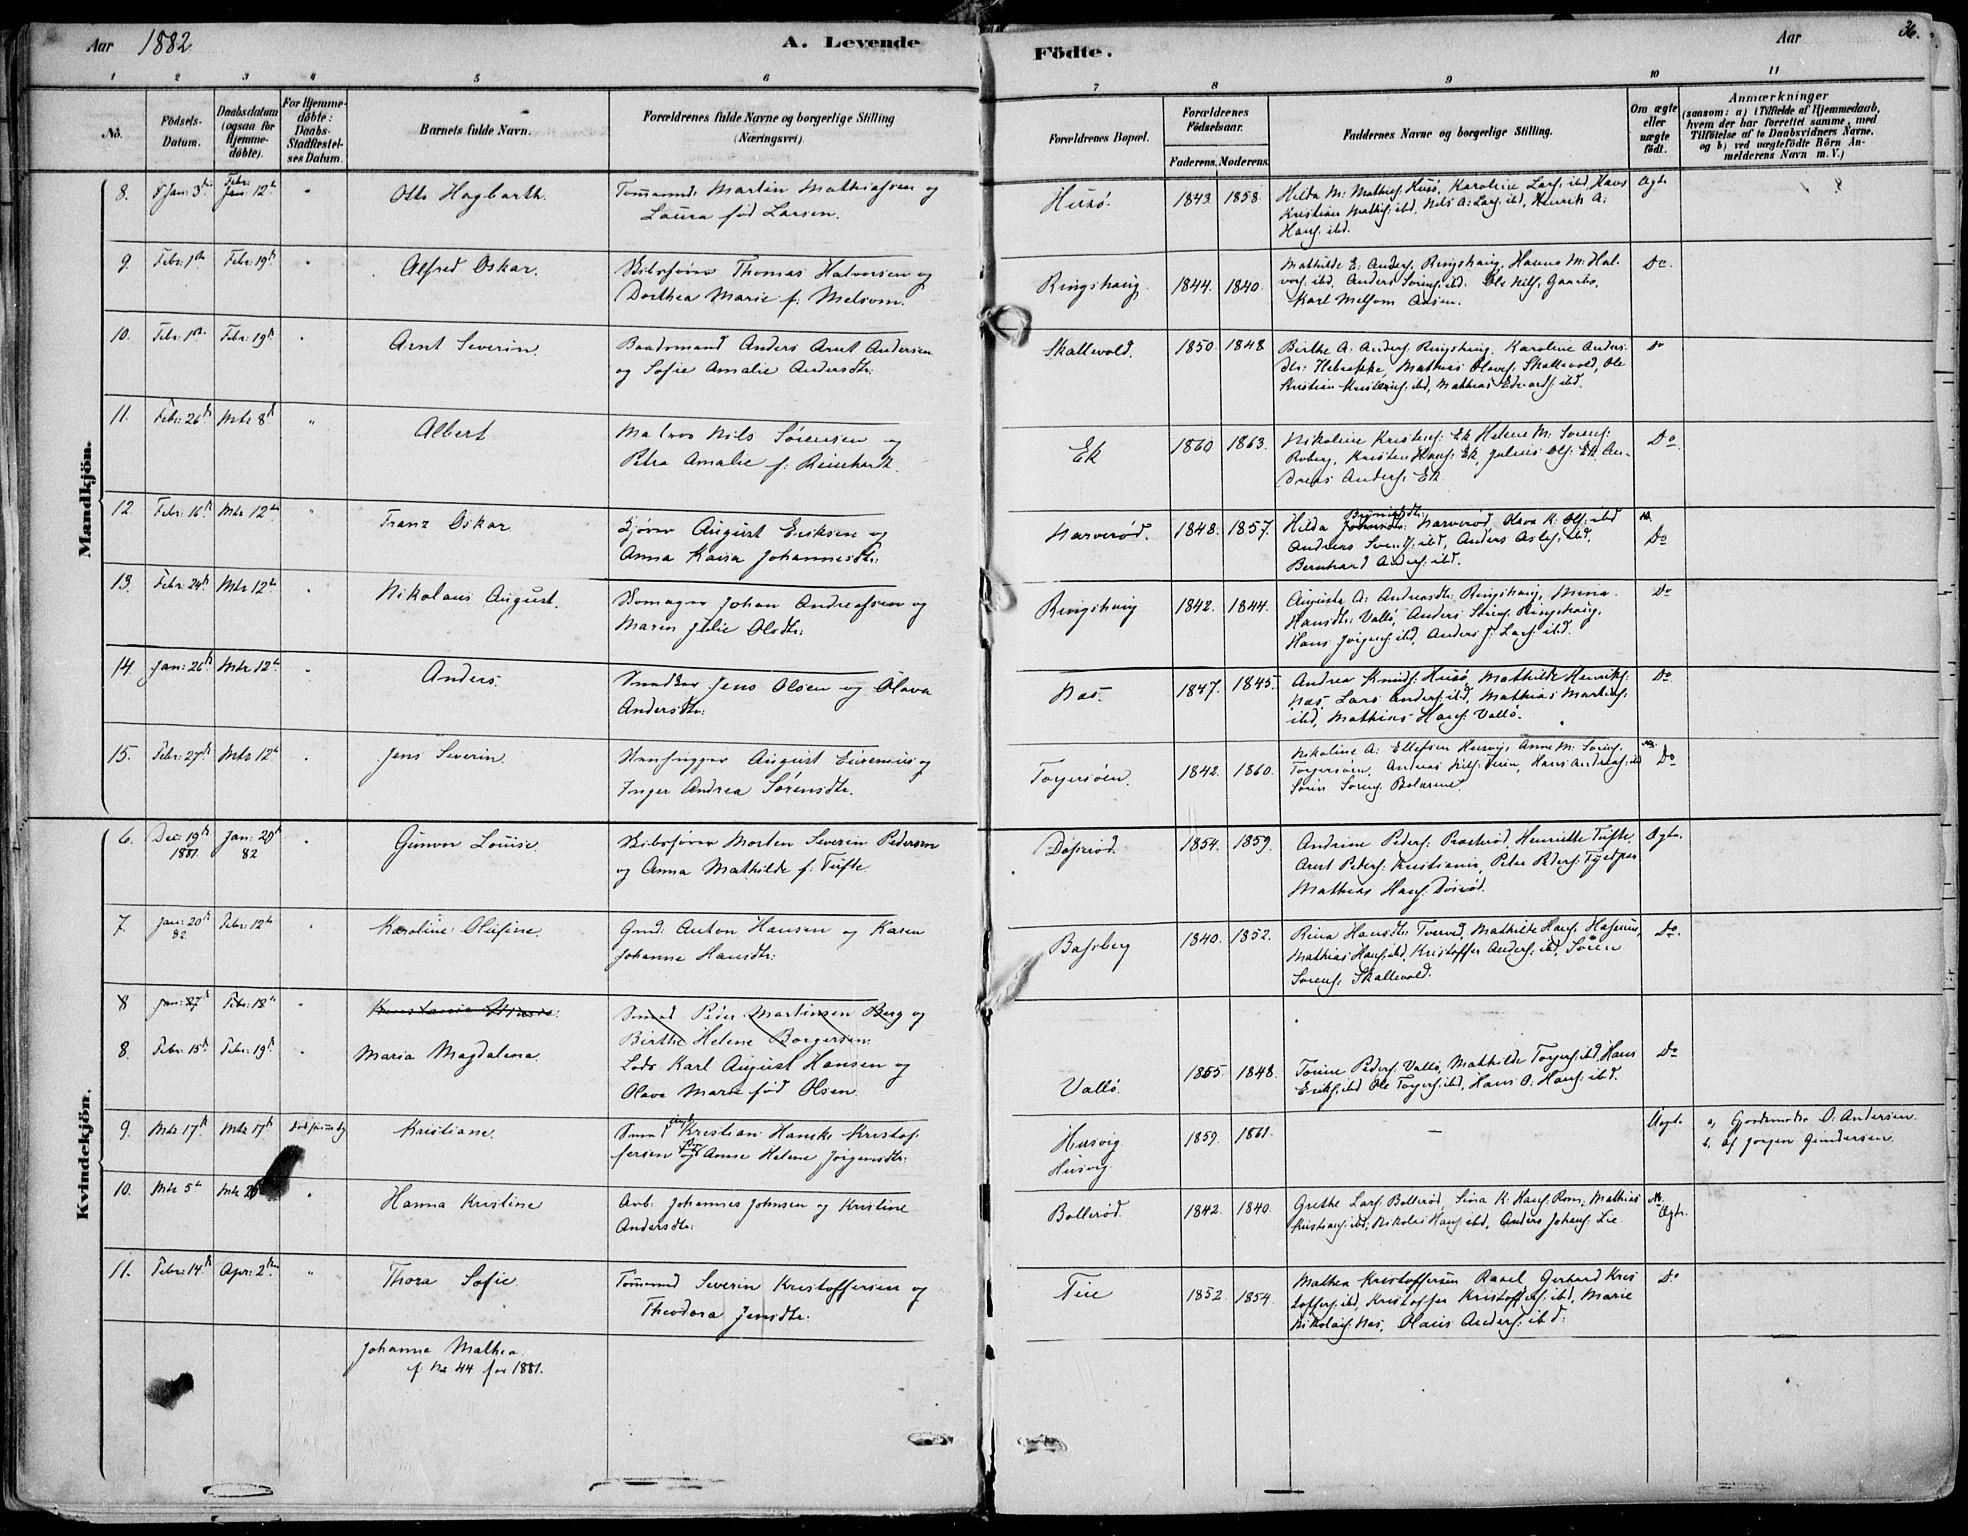 Aar 1882
A. Levende
Födte.
Aar
36.
1 2 3 4 5 6 7 8 9 10 11
No.
Födsels-
Datum.
Daabsdatum
(ogsaa for
Hjemme-
döbte).
For Hjemme-
döbte:
Daabs-
Stadfæstel-
ses Datum.
Barnets fulde Navn.
Forældrenes fulde Navne og borgerlige Stilling
(Næringsvei).
Forældrenes Bopæl.
Forældrenes
Födselsaar.
Faderens. Moderens.
Faddernes Navne og borgerlige Stilling.
Om ægte
eller
uægte
födt.
Anmærkninger
(saasom: a) i Tilfælde af Hjemmedaab,
hvem der har forrettet samme, med
Tilföielse af to Daabsvidners Navne,
og b) ved uægtefödte Börn An-
melderens Navn m. V.)
Mandkjön.
8. Jan: 3die Febr: Jan: 12te " Otto Hagbarth.
Tömmand: Martin Mathiassen og
Laura fød Larsen.
Husø. 1843 1858.
Hilda M: Mathis: Husø, Karoline Lars: ibd, Hans
Kristian Mathis: ibd, Nils A: Lars: ibd, Henrik A:
Hans: ibd.
Ægte
9. Febr: 1ste Febr: 19de " Alfred Oskar.
Skibsfører Thomas Halvorsen og
Dorthea Marie f: Melsom.
Ringshaug. 1844. 1840.
Mathilde E: Anders: Ringshaug, Hanna M: Hal-
vors: ibd, Anders Sørens: ibd. Ole Nils: Gaarbo,
Karl Melsom Aasen.
Do.
10. Febr: 1ste Febr: 19de " Arnt Severin.
Baadsmand Anders Arnt Andersen
og Sofie Amalie Andersdtr:
Skallevold. 1850. 1848
Birthe A: Anders: Ringshaug, Karoline Anders-
dtr: Mathias Olavs: Skallevold, Ole
Kristian Kristens: ibd, Mathias Edvards: ibd.
Do
11. Febr: 26de Mts 8de " Albert
Matros Nils Sørensen og
Petra Amalie f: Reinhardt.
Ek 1860 1863.
Nikoline Kristens: Ek Helene M: Sørens:
Roberg, Kristen Hans: Ek, Julius Ols: Ek, An-
dreas Anders: Ek.
Do
12 Febr: 16de Mts 12te " Franz Oskar
Gjører August Eriksen og
Anna Kaisa Johannesdtr:
Narverød. 1848. 1857.
Hilda Narverød, Olava K: Ols: ibd
Andreas Svends: ibd, Anders Asles: ibd,
Bernhard Anders: ibd.
Do
13. Febr: 24de Mts 12te " Nikolaus August.
Skomager Johan Andreassen og
Maren Julie Olsdtr:
Ringshaug 1842. 1844.
Augusta A: Andreasdtr: Ringshaug, Mina
Hansdtr: Vallø, Anders Sørens: Ringshaug,
Hans Jørgens: ibd, Anders J: Lars: ibd.
Do
14. Jan: 26de Mts 12te " Anders.
Snedker Jens Olsen og Olava
Andersdtr:
Næs. 1847. 1845.
Andrea Knuds: Husø, Mathilde Henriks:
Næs, Lars Anders: ibd, Mathias Martins:
ibd, Mathias Hans: Vallø.
Do
15. Febr: 27de Mts 12te " Jens Severin.
Stenhugger August Eurenius og
Inger Andrea Sørensdtr.
Torgersøen. 1842. 1860.
Nikoline A: Ellefsen Husvig, Anne M: Sørens:
Torgersøen, Andreas Nils: Veien, Hans Andreas: ibd
Søren Sørens: Bolærne.
Do
Kvindekjön.
6. Dec: 19de
1881. Jan: 29de
82 " Gunvor Louise.
Skibsfører Morten Severin Pedersen
og Anna Mathilde f: Tufte.
Døsserød. 1854. 1859.
Andrine Peders: Præsterød, Henriette Tufte,
Arnt Peders: Kristiania, Peter Peders:
Mathias Hans: Døsserød.
Ægte.
7. Jan: 20de
82 Febr: 12te " Karoline Olufine.
Gmd: Anton Hansen og Karen
Johanne Hansdtr:
Basberg 1840. 1852.
Rina Hansdtr: Tveved, Mathilde Hans:
Mathias Hans: ibd, Kristoffer Anders: ibd, Søren
Sørens: Skallevold.
Do.
8 Jan: 27de Febr: 12te " Konstance
Smed Peder Martinsen Berg og
Birthe Helene Borgersen:
8. Febr: 15de Febr: 19de " Maria Magdalena.
Lods Karl August Hansen og
Olava Marie fød Olsen.
Vallø. 1855 1848.
Torine Peders: Vallø, Mathilde Torgers: ibd, Hans
Eriks: ibd Ole Torgers: ibd, Hans O: Hans: ibd.
Do
9. Mts 17de Mts 17de Kristiane.
Smed Kristian Hancke Kristof-
fersen og Anne Helene Jørgensdtr:
Husvig
Husvig 1859. 1861. —
Uægte
a, Gjordemoder O. Andersen.
b, af Jørgen Gundersen
10. Mts 5te Mts 26 " Hanna Kristine
Arb: Johannes Johnsen og Kristine
Andersdtr:
Bollerød. 1842. 1840.
Grethe Lars: Bollerød, Sina K: Hans: Rom, Mathias
Kristians: ibd, Nikolai Hans: ibd, Anders Johans: Lie.
Ægte.
11. Febr: 14de Apr: 2den " Thora Sofie.
Tömmand Severin Kristoffersen og
Theodora Jensdtr:
Teie 1852. 1854.
Mathea Kristoffersen Ravel Gerhard Kris-
toffers: ibd, Kristoffer Kristoffers: ibd, Marie
Nikolais: Næs, Hans Anders: ibd:
Do
Johanna Mathea.
f. No 44 for 1881.